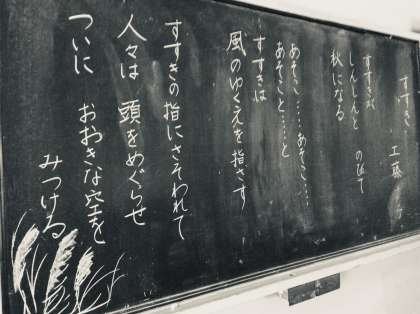 すすき 工藤
すすきが
しんしんと のびて
秋になる
あそこ……あそこ……
あそこと……と
すすきは
風のゆくえを指さす
すすきの指にさそわれて
人々は 頭をめぐらせ
ついに おおきな空を
みつける